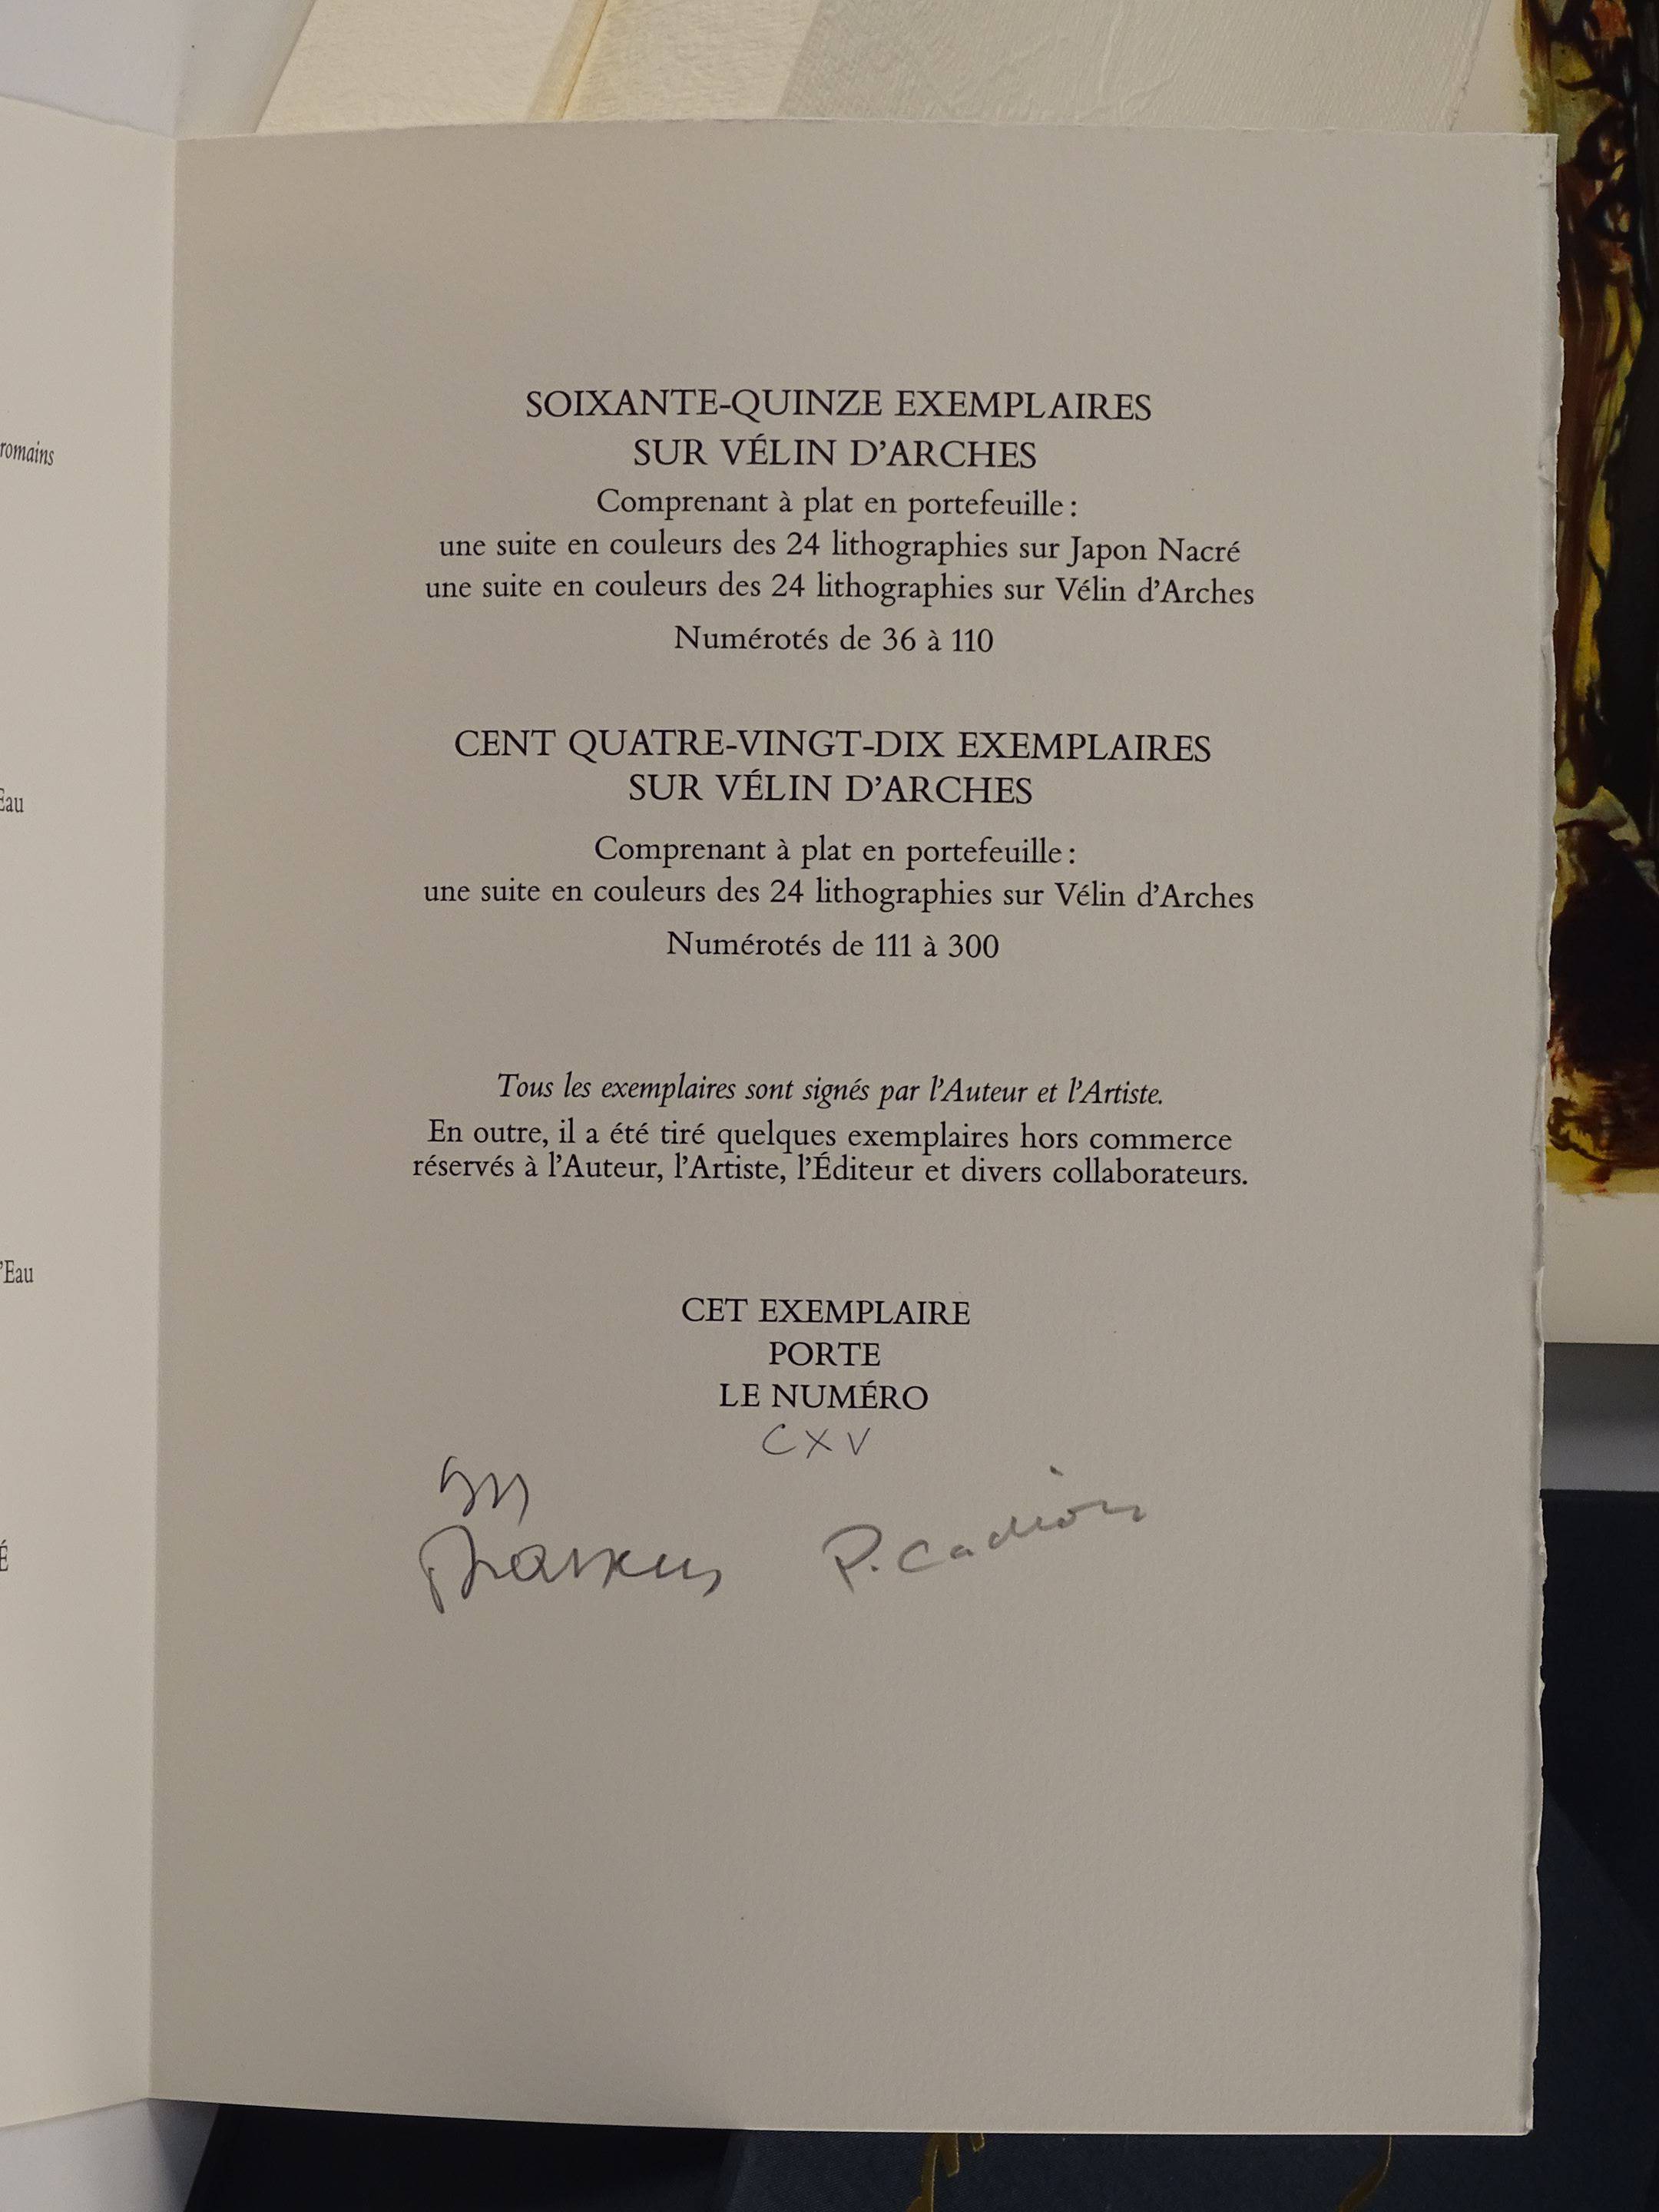 romains
Eau
'Eau
É
SOIXANTE-QUINZE EXEMPLAIRES
SUR VÉLIN D'ARCHES
Comprenant à plat en portefeuille :
une suite en couleurs des 24 lithographies sur Japon Nacré
une suite en couleurs des 24 lithographies sur Vélin d'Arches
Numérotés de 36 à 110
CENT QUATRE-VINGT-DIX EXEMPLAIRES
SUR VÉLIN D'ARCHES
Comprenant à plat en portefeuille :
une suite en couleurs des 24 lithographies sur Vélin d'Arches
Numérotés de 111 à 300
Tous les exemplaires sont signés par l'Auteur et l'Artiste.
En outre, il a été tiré quelques exemplaires hors commerce
réservés à l'Auteur, l'Artiste, l'Éditeur et divers collaborateurs.
CET EXEMPLAIRE
PORTE
LE NUMÉRO
CXV
P.